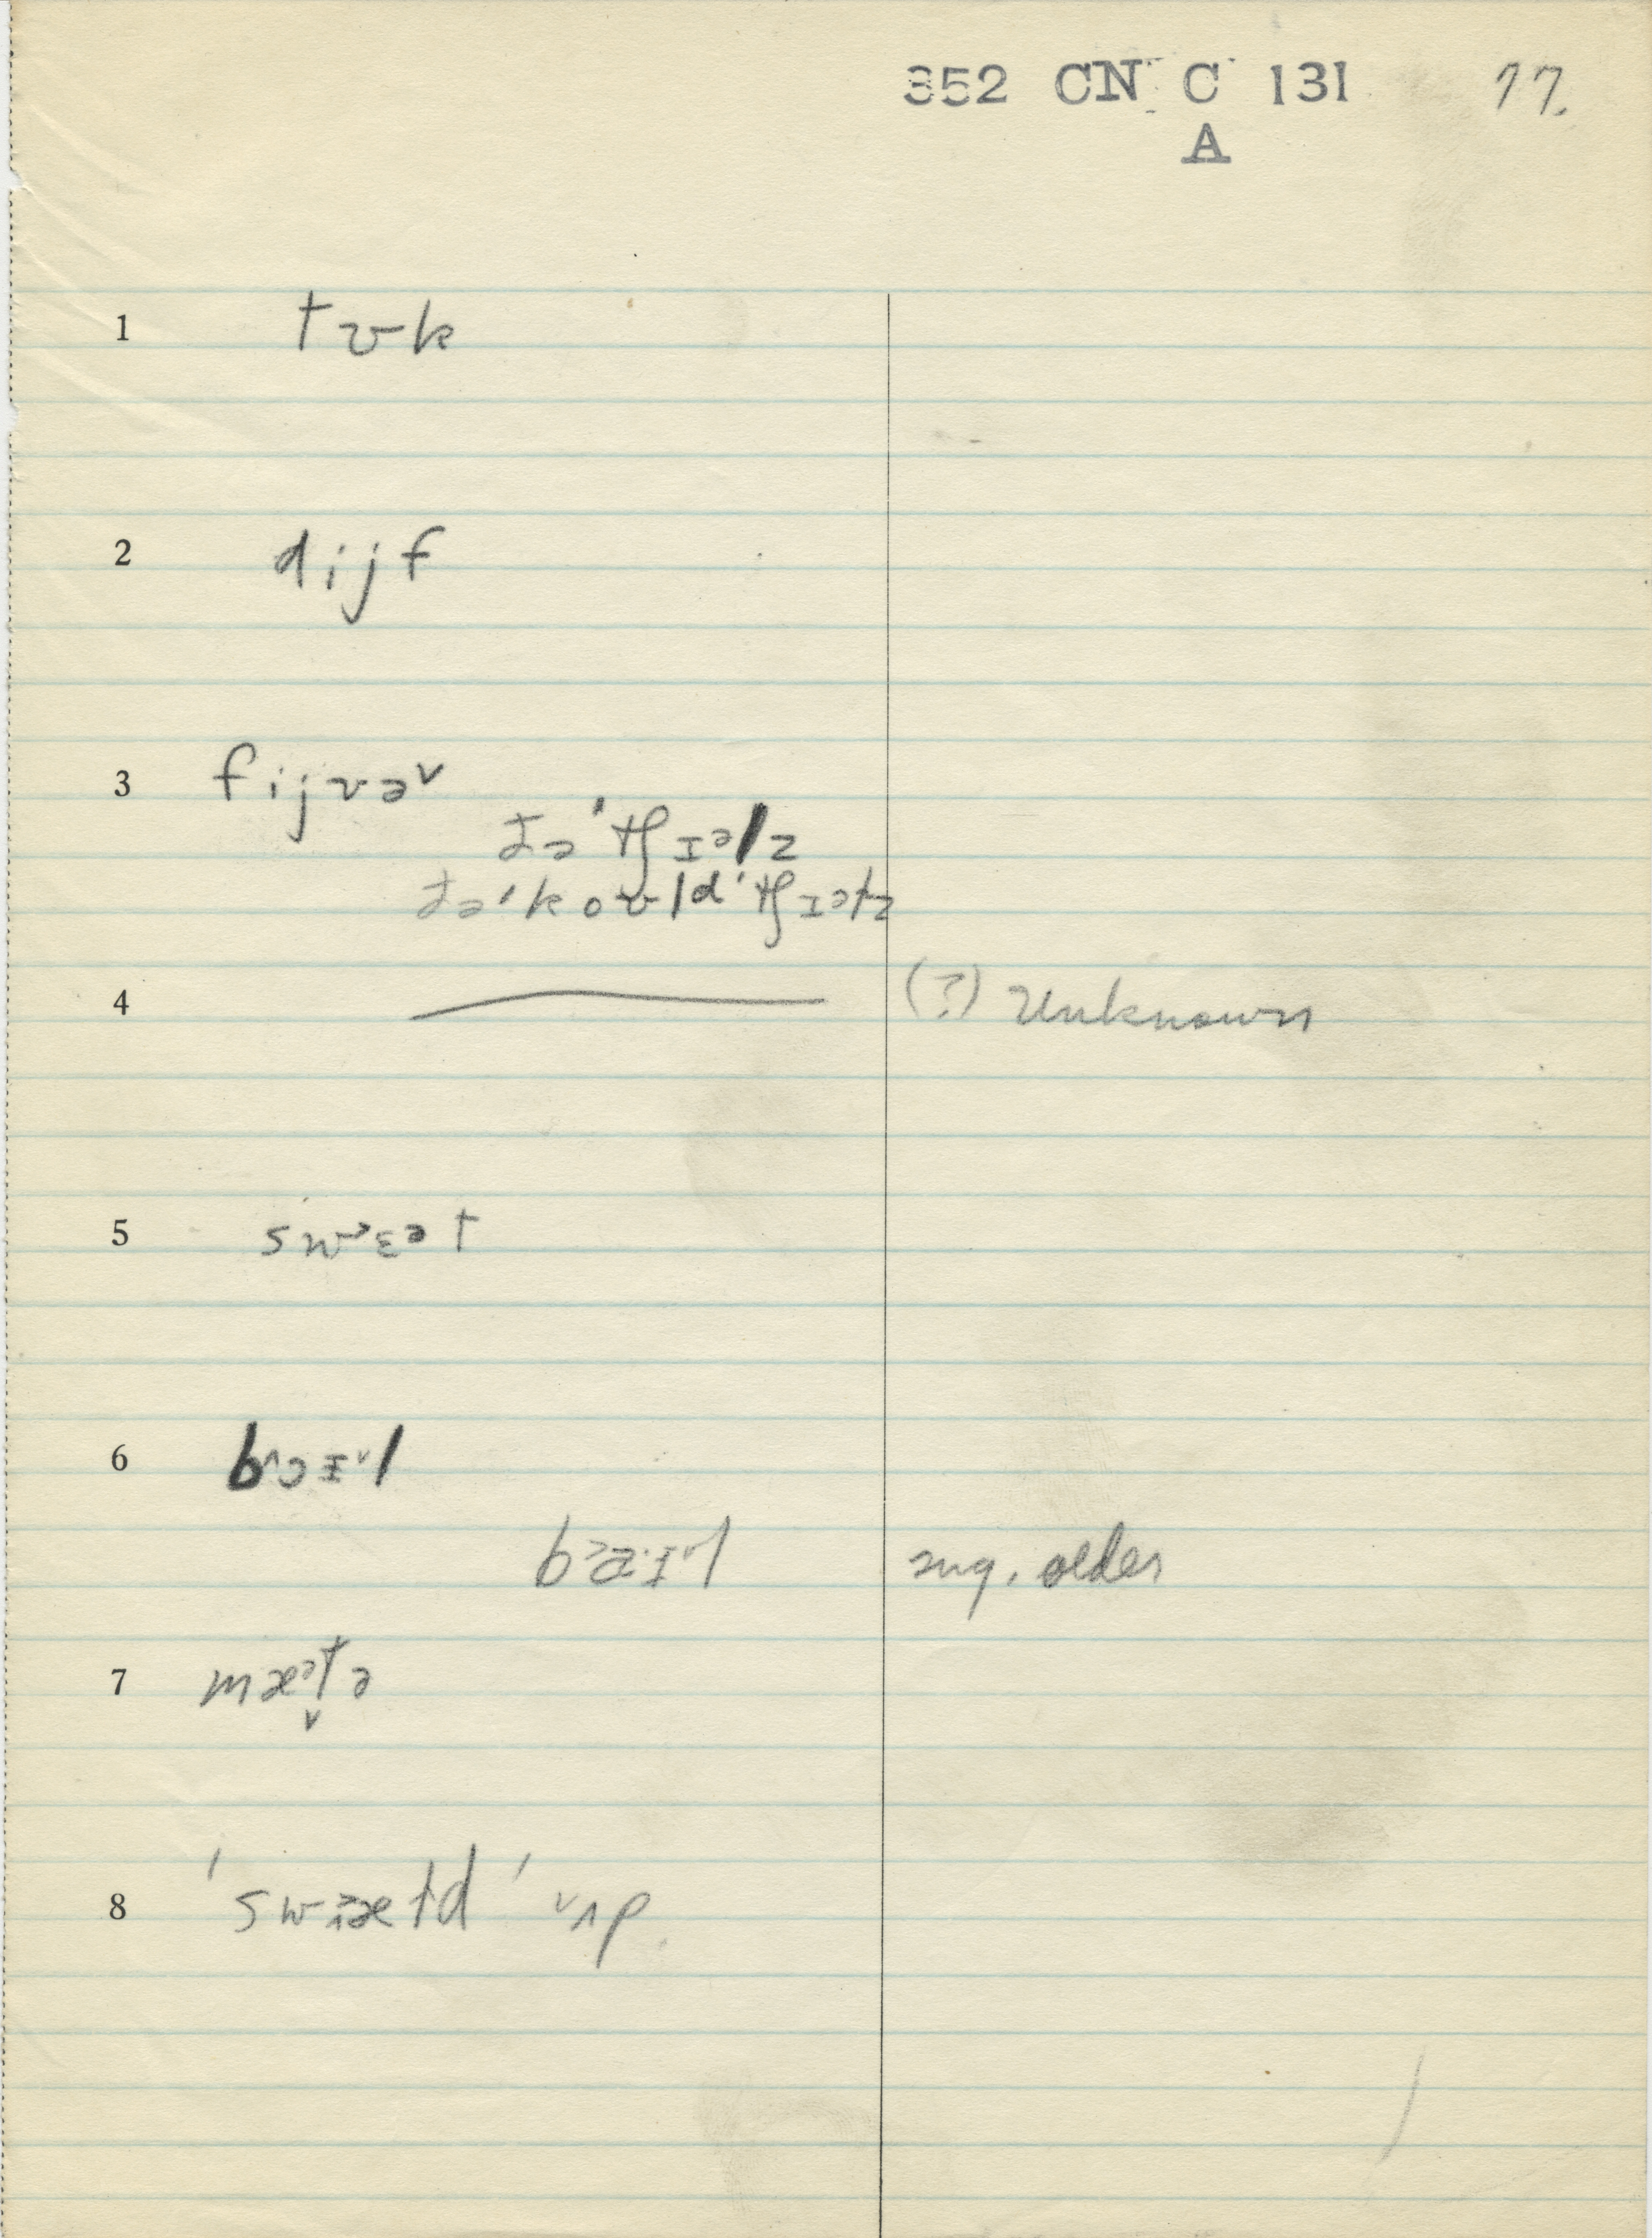 352 CN C 131 77.
A
1 tʊk
2 dijf
3 fijvə˅
ðə ˈtʃɪəlz
ðə ˈkoʊld ˈtʃɪəlz
4 —— (?) Unknown
5 swɛət
6 bɔɪl
baɪl sug. older
7 mæᵊt̬ə
8 ˈswɛtd ˈʌp